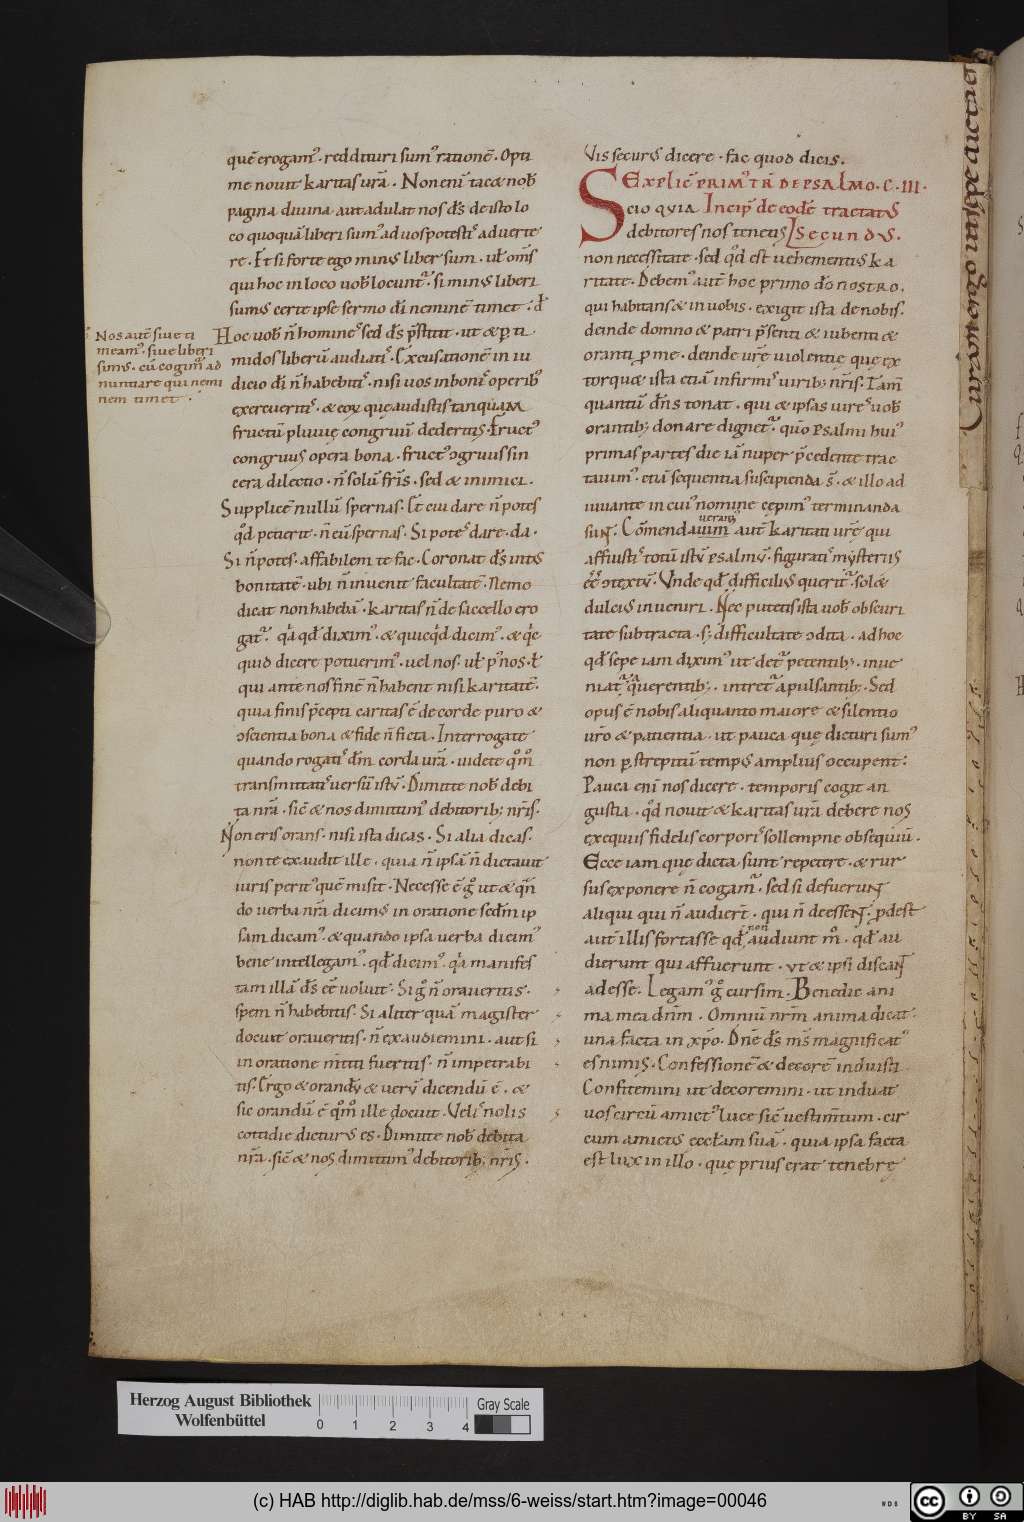 quē erogam᷒. reddituri sum᷒ rationē. Opti
me nouit karitas ur̄a. Non eni tac& nob̄
pagina diuina. aut adulat nos d̄s de isto lo
co quoquā liberi sum᷒ ad uos potesti᷒ aduerte
re. Et si forte ego min᷒ liber sum. ut om̄s
qui hoc in loco uob̄ locunt᷒. si min᷒ liberi
sum᷒ certe ipse sermo dī neminē timet. d̄
Hoc uob̄ n̄ homine᷒ sed d̄s p̄stitit. ut & p̱ ti
midos liberū audiati᷒. Excusationē in iu
dicio dī n̄ habebiti᷒. nisi uos in boni᷒ operib᷒
exercueriti᷒. & eoꝝ quę audistis tanquam
fructū pluuię congruū dederitis. Fruct᷒
congruus opera bona. fruct᷒ ɔgruus sin
cera dilectio. n̄ solū fr̄is. sed & inimici.
Supplicē nullū spernas. Et cui dare n̄ potes
qd̄ petierit. n̄ eū spernas. Si pote᷒ dare. da.
Si n̄ potes. affabilem te fac. Coronat d̄s int᷒
bonitatē. ubi n̄ inuenit facultatē. Nemo
dicat non habebā. karitas n̄ de saccello ero
gat᷒. qa qd̄ dixim᷒. & quicqd̄ dicim᷒. & qc̄
quid dicere potuerim᷒. uel nos. uł p᷒ nos. ł
qui ante nos finē n̄ habent nisi karitatē.
quia finis p̄cepti caritas ē de corde puro &
ɔscientia bona & fide n̄ ficta. Interrogate
quando rogati᷒ dm̄ corda ur̄a. uidete qm̊
transmittati᷒ uersū istū. Dimitte nob̄ debi
ta nr̄a. sic̄ & nos dimittim᷒ debitorib; nr̄is.
Non eris orans. nisi ista dicas. Si alia dicas.
non te exaudit ille. quia n̄ ipsā n̄ dictauit
iuris perit᷒ quē misit. Necesse ē g̊ ut & qn̄
do uerba nr̄a dicim᷒ in oratione sedm̄ ip
sam dicam᷒. & quando ipsa uerba dicim᷒
bene intellegam᷒. qd̄ dicim᷒. qa manifes
tam illā d̄s eē uoluit. Si g̊ n̄ oraueritis.
spem n̄ habebitis. Si aliter quā magister
docuit oraueritis. n̄ exaudiemini. aut si
in oratione m̄titi fueritis. n̄ impetrabi
tis. Ergo & orandū & uerū dicendū ē. &
sic orandū ē qm̊ ille docuit. Veli᷒ nolis
cottidie dictur᷒ es. Dimitte nob̄ debita
nr̄a. sic̄ & nos dimittim᷒ debitorib; nr̄is.
Nos autē siue ti
meam᷒. siue liberi
sim᷒. eū cogim̄ ad
nuntiare qui nemi
nem timet.
Vis secur᷒ dicere. fac quod dicis.
EXPLIĒ PRIM᷒ TR̄ DE PSALMO. C. III.
Scio quia Incip̄ de eodē tractat᷒
debitores nos tenetis secundus.
non necessitate. sed qd̄ est uehementi᷒ ka
ritate. Debem᷒ aut̄ hoc primo dō nostro.
qui habitans & in uobis. exigit ista de nobis.
deinde domno & patri p̄senti & iubenti &
oranti p̱ me. deinde ur̄e uiolentię quę ex
torqu& ista etiā infirmi᷒ uirib; nr̄is. Tam̄
quantū dn̄s tonat. qui & ipsas uire᷒ uob̄
orantib; donare dignet᷒. qm̊ psalmi hui᷒
primas partes die iā nuper p̄cedente trac
tauim᷒. etiā sequentia suscipienda s̄. & illo ad
iuuante in cui᷒ nomine cepim᷒ terminanda
sunt. Cōmendauim uerant̄ aut̄ karitati ur̄e qui
affuisti᷒ totū istū psalmū. figurati᷒ mysteriis
eē ɔtextū. Vnde qd̄ difficili᷒ querit᷒. sol&
dulci᷒ inueniri. Nec putetis ista uob̄ obscuri
tate subtracta. s; difficultate ɔdita. ad hoc
qd̄ sepe iam dixim᷒ ut det᷒ petentib;. inue
niat᷒ querentib;. intret᷒ a pulsantib;. Sed
opus ē nobis aliquanto maiore & silentio
ur̄o & patientia. ut pauca quę dicturi sum᷒
non p̱ strepitū temp᷒ amplius occupent.
Pauca eni nos dicere. temporis cogit an
gustia. qd̄ nouit & karitas ur̄a debere nos
exequiis fidelis corpori᷒ sollempne obsequiū.
Ecce iam quę dicta sunt repetere. & rur
sus exponere n̄ cogam᷒. sed si defuerunt
aliqui qui n̄ audiert̄. qui n̄ deessent. pdest
aut̄ illis fortasse qd̄ non audiunt m̊. qd̄ au
dierunt qui affuerunt. ut & ipsi discant
adesse. Legam᷒ g̊ cursim. Benedic ani
ma mea dnm̄. Omniū nrm̄ anima dicat.
una facta in xp̄o. Dn̄e d̄s m̄s magnificat᷒
es nimis. Confessionē & decorē induisti
Confitemini ut decoremini. ut induat
uos circū amict᷒ luce sic̄ uestim̄tum. cir
cum amict᷒ eccłam suā. quia ipsa facta
est lux in illo. quę prius erat tenebrę
Herzog August Bibliothek
Wolfenbüttel
0 1 2 3 4
Gray Scale
(c) HAB http://diglib.hab.de/mss/6-weiss/start.htm?image=00046
WDB
cc BY SA